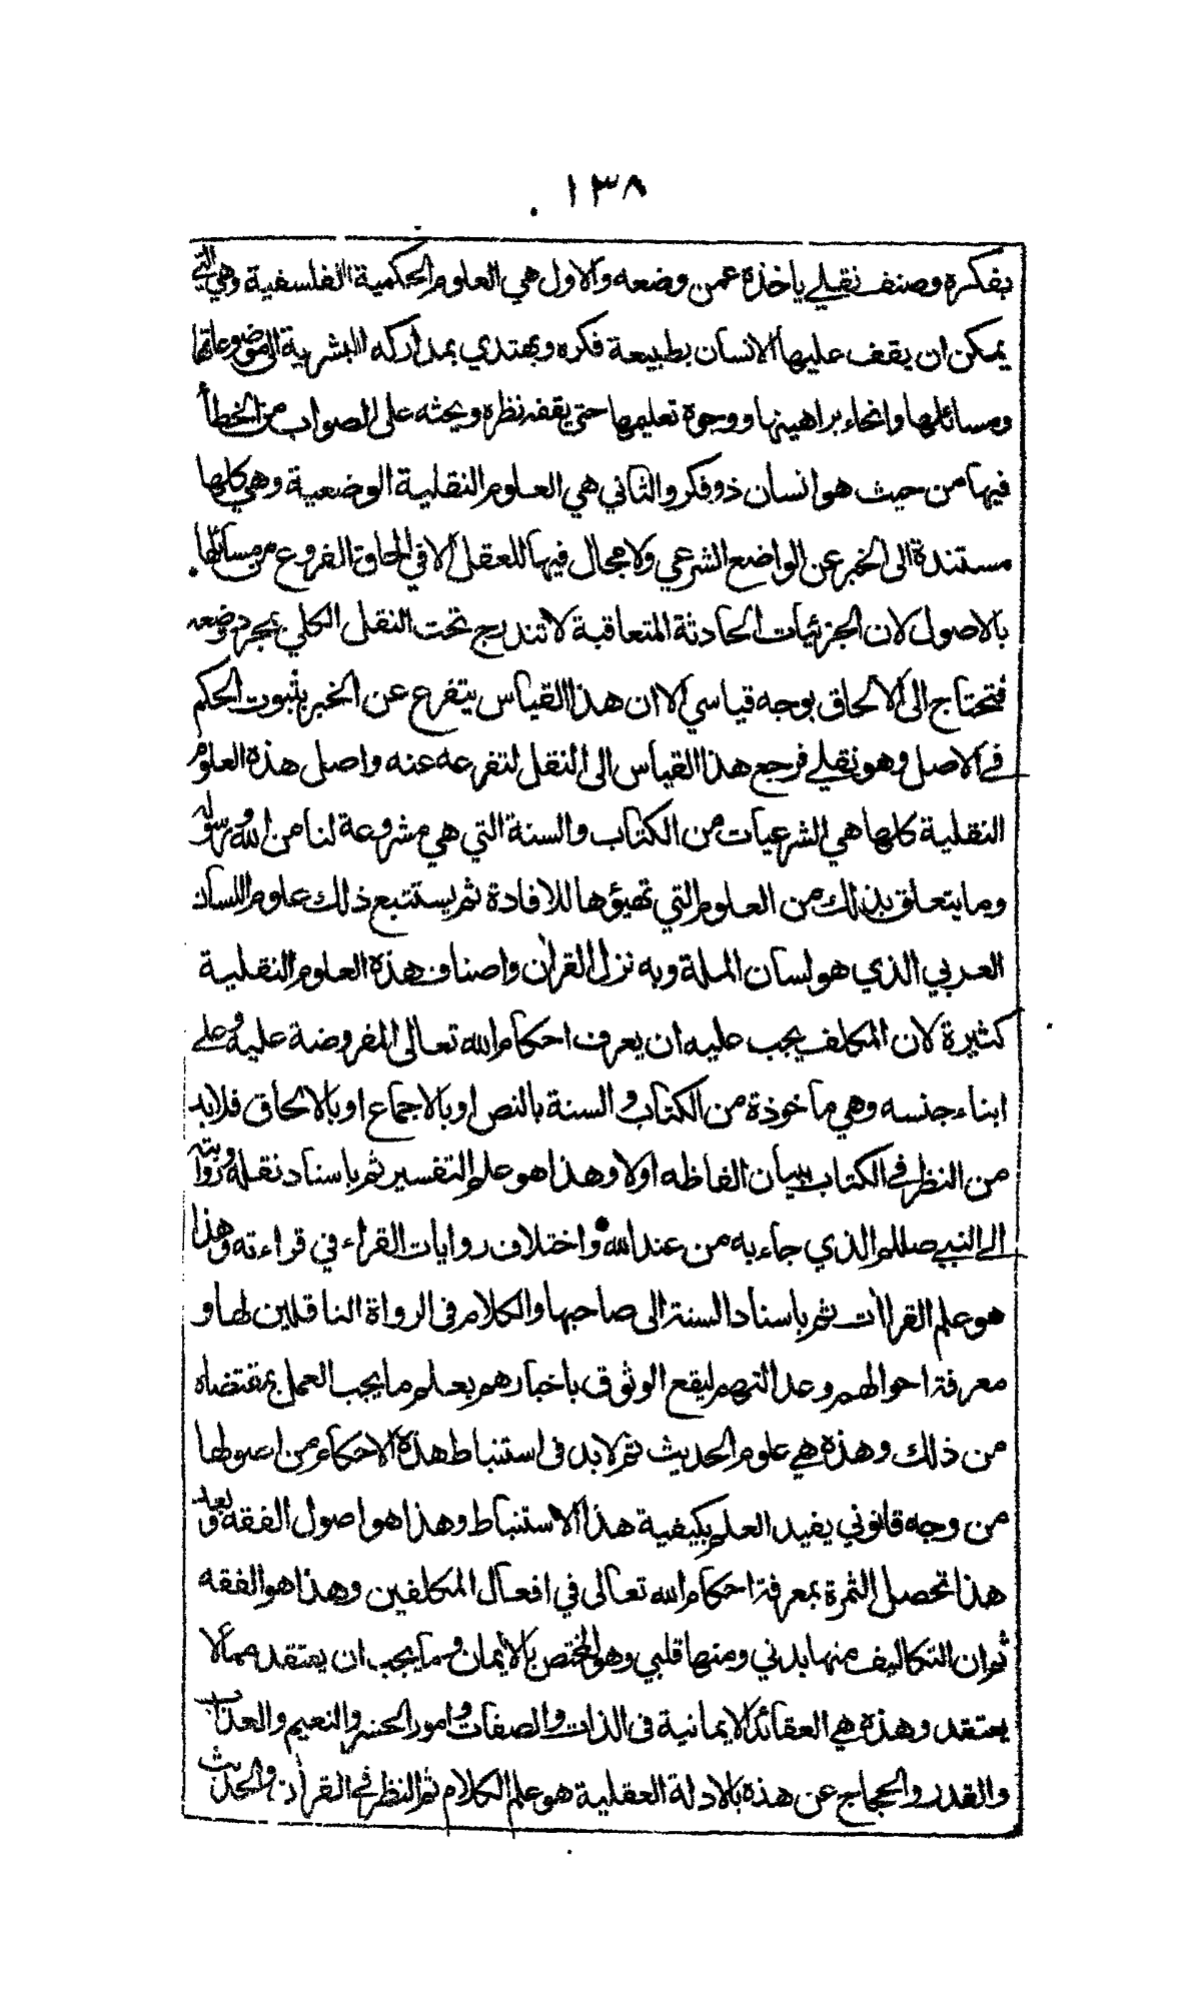 ١٣٨
بفكره وصنف نقلي ياخذه عمن وضعه والاول هي العلوم الحكمية الفلسفية وهي التي
يمكن ان يقف عليها الانسان بطبيعة فكره ويهتدي بمداركه البشرية الى موضوعاتها
ومسائلها وانحاء براهينها ووجوه تعليمها حتى يقفه نظره ويحثه على الصواب من الخطأ
فيها من حيث هو انسان ذو فكر والثاني هي العلوم النقلية الوضعية وهي كلها
مستندة الى الخبر عن الواضع الشرعي ولا مجال فيها للعقل الا في الحاق الفروع من مسائلها
بالاصول لان الجزئيات الحادثة المتعاقبة لا تندرج تحت النقل الكلي بمجرد وضعه
فتحتاج الى الالحاق بوجه قياسي الا ان هذا القياس يتفرع عن الخبر بثبوت الحكم
في الاصل وهو نقلي فرجع هذا القياس الى النقل لتفرعه عنه واصل هذه العلوم
النقلية كلها هي الشرعيات من الكتاب والسنة التي هي مشروعة لنا من الله ورسوله
وما يتعلق بذلك من العلوم التي تهيؤها للافادة ثم يستتبع ذلك علوم اللسان
العربي الذي هو لسان الملة وبه نزل القران واصناف هذه العلوم النقلية
كثيرة لان المكلف يجب عليه ان يعرف احكام الله تعالى المفروضة عليه وعلى
ابناء جنسه وهي ماخوذة من الكتاب والسنة بالنص او بالاجماع او بالالحاق فلا بد
من النظر في الكتاب ببيان الفاظه اولا وهذا هو علم التفسير ثم باسناد نقله وروايته
الى النبي صللم الذي جاء به من عند الله واختلاف روايات القراء في قراءته وهذا
هو علم القراات ثم باسناد السنة الى صاحبها والكلام في الرواة الناقلين لها و
معرفة احوالهم وعدالتهم ليقع الوثوق باخبارهم بعلم ما يجب العمل بمقتضاه
من ذلك وهذه هي علوم الحديث ثم لا بد في استنباط هذه الاحكام من اصولها
من وجه قانوني يفيد العلم بكيفية هذا الاستنباط وهذا هو اصول الفقه وبعد
هذا تحصل الثمرة بمعرفة احكام الله تعالى في افعال المكلفين وهذا هو الفقه
ثم ان التكاليف منها بدني ومنها قلبي وهو المختص بالايمان وما يجب ان يعتقد مما لا
يعتقد وهذه هي العقائد الايمانية في الذات والصفات وامور الحشر والنعيم والعذاب
والقدر والحجاج عن هذه بالادلة العقلية هو علم الكلام ثم النظر في القران والحديث